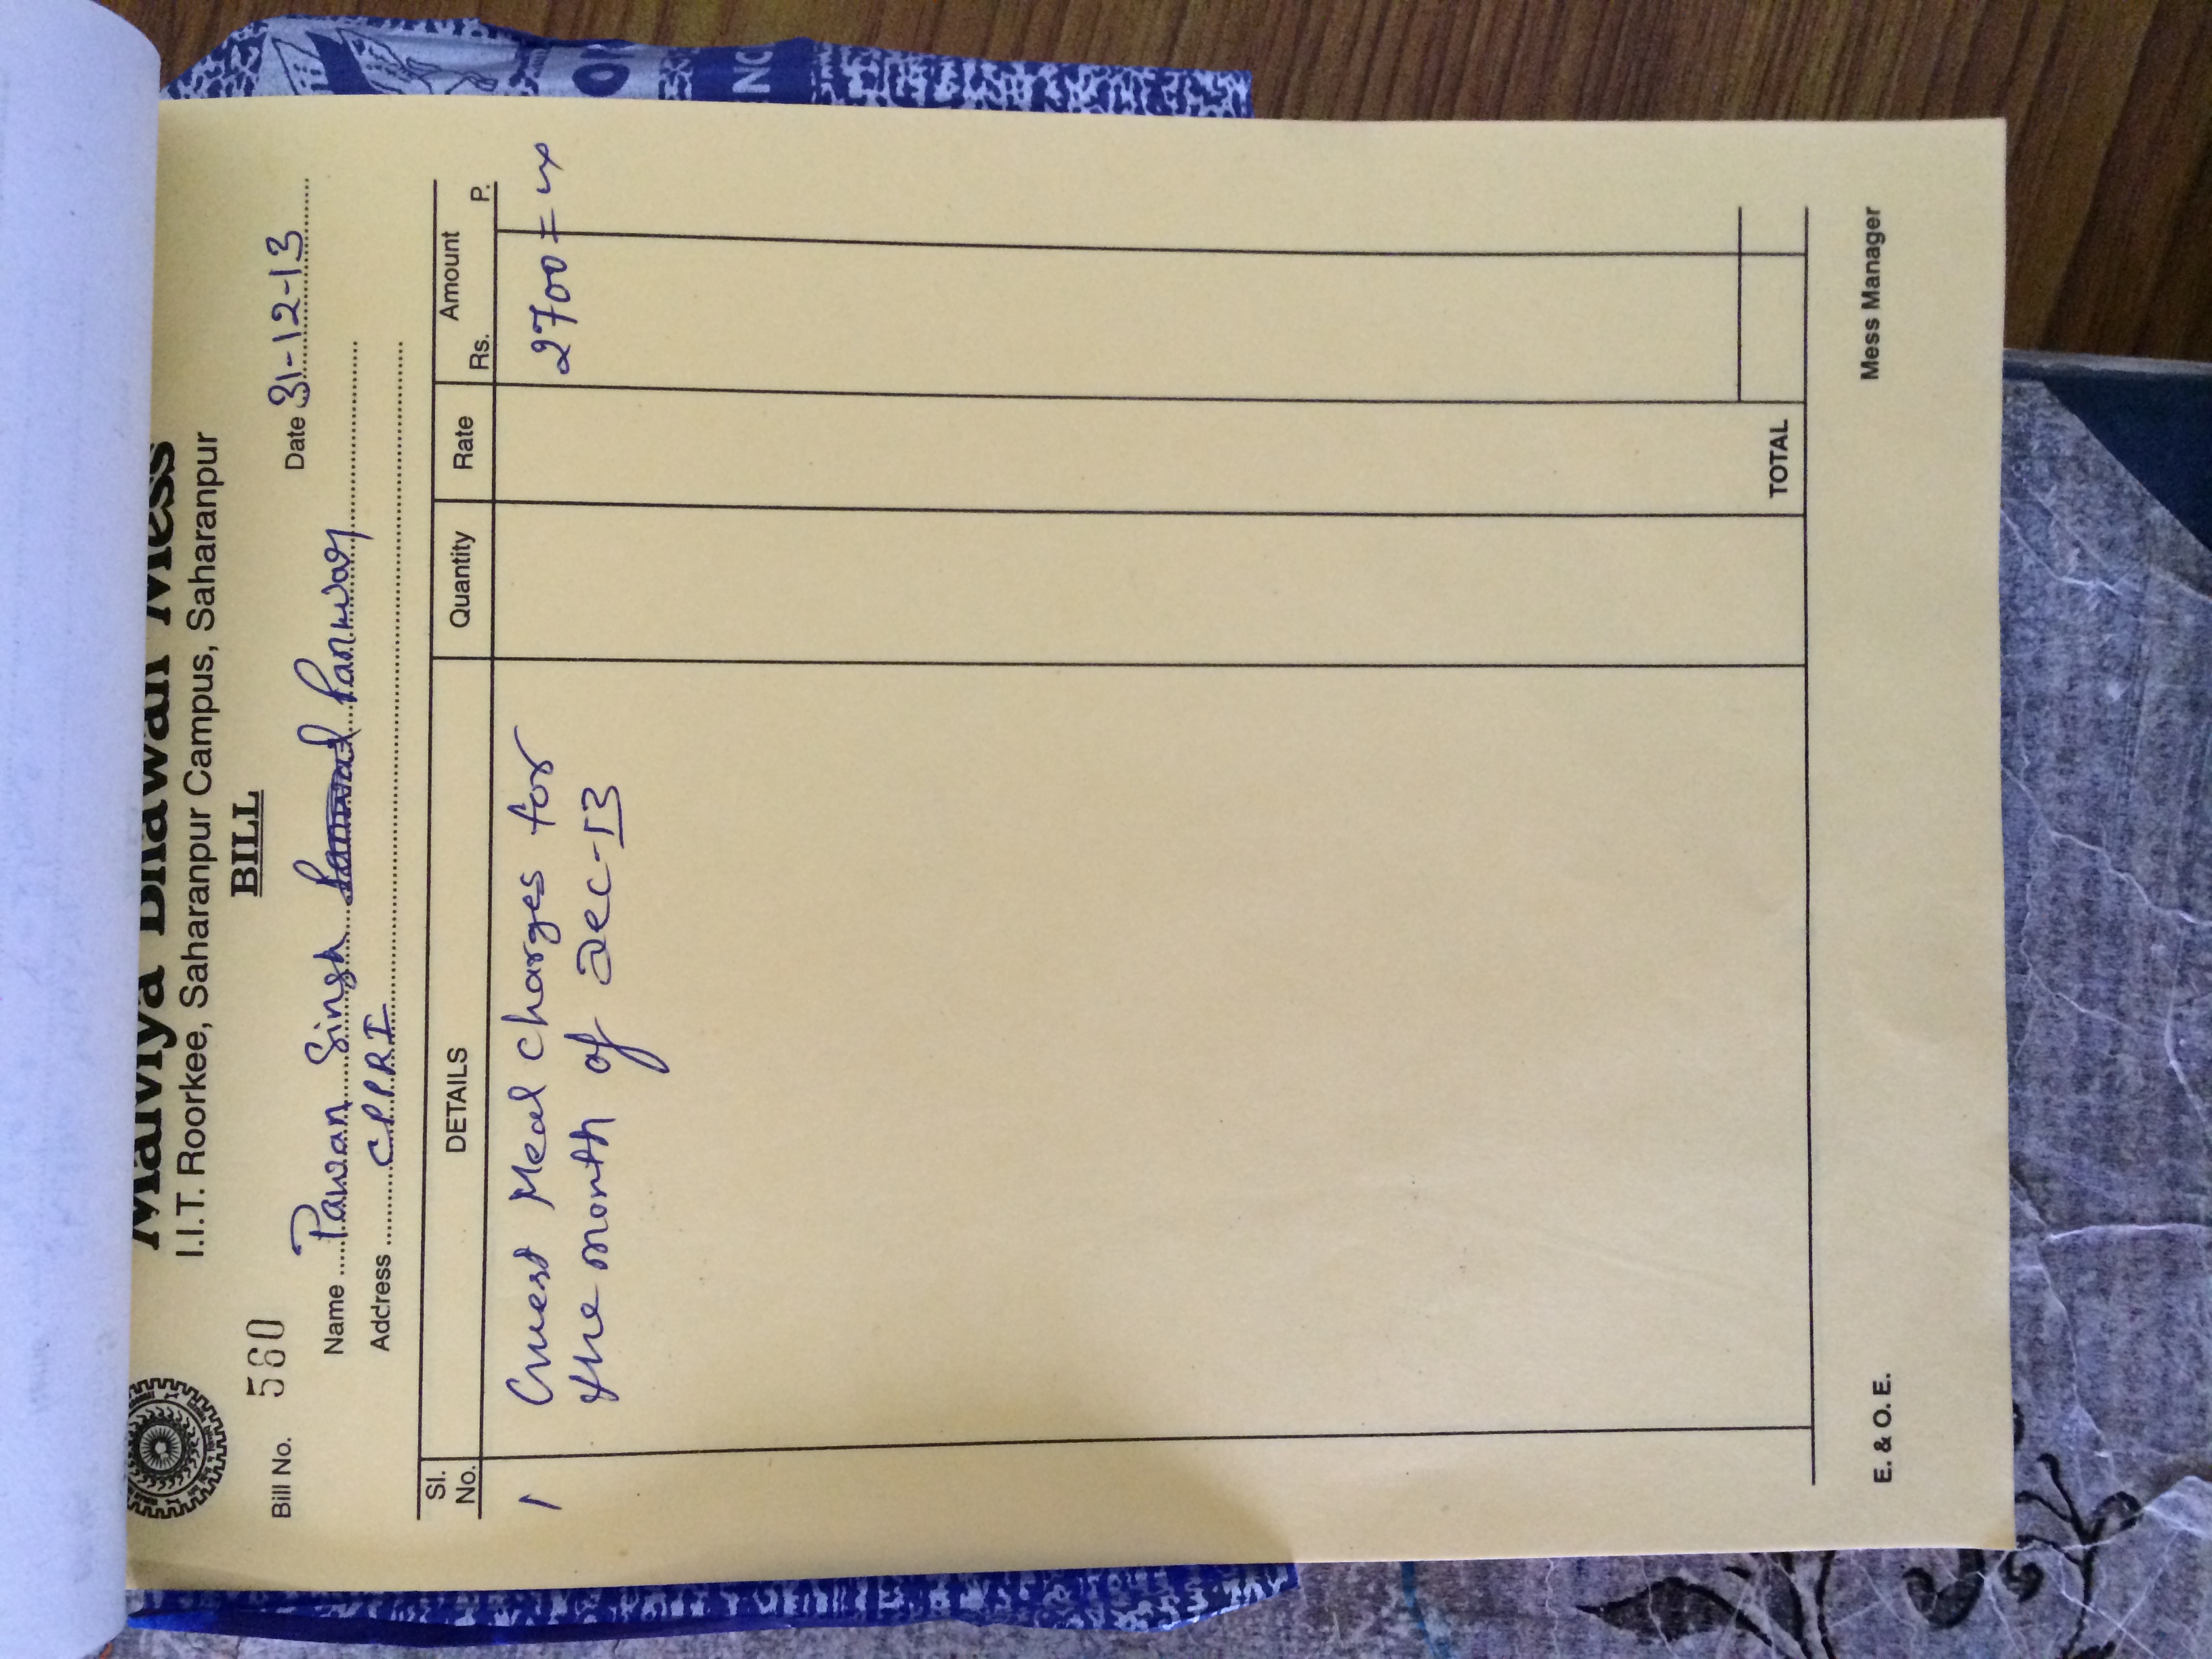 Malviya Bhawan Mess
I.I.T. Roorkee, Saharanpur Campus, Saharanpur
BILL
Bill No. 560
Date 31-12-13
Name Pawan Singh Panwar
Address CPPRI
Sl. No. DETAILS Quantity Rate Amount Rs. P.
1 Guest Meal charges for 2700=
the month of Dec-13
TOTAL
E. & O. E. Mess Manager